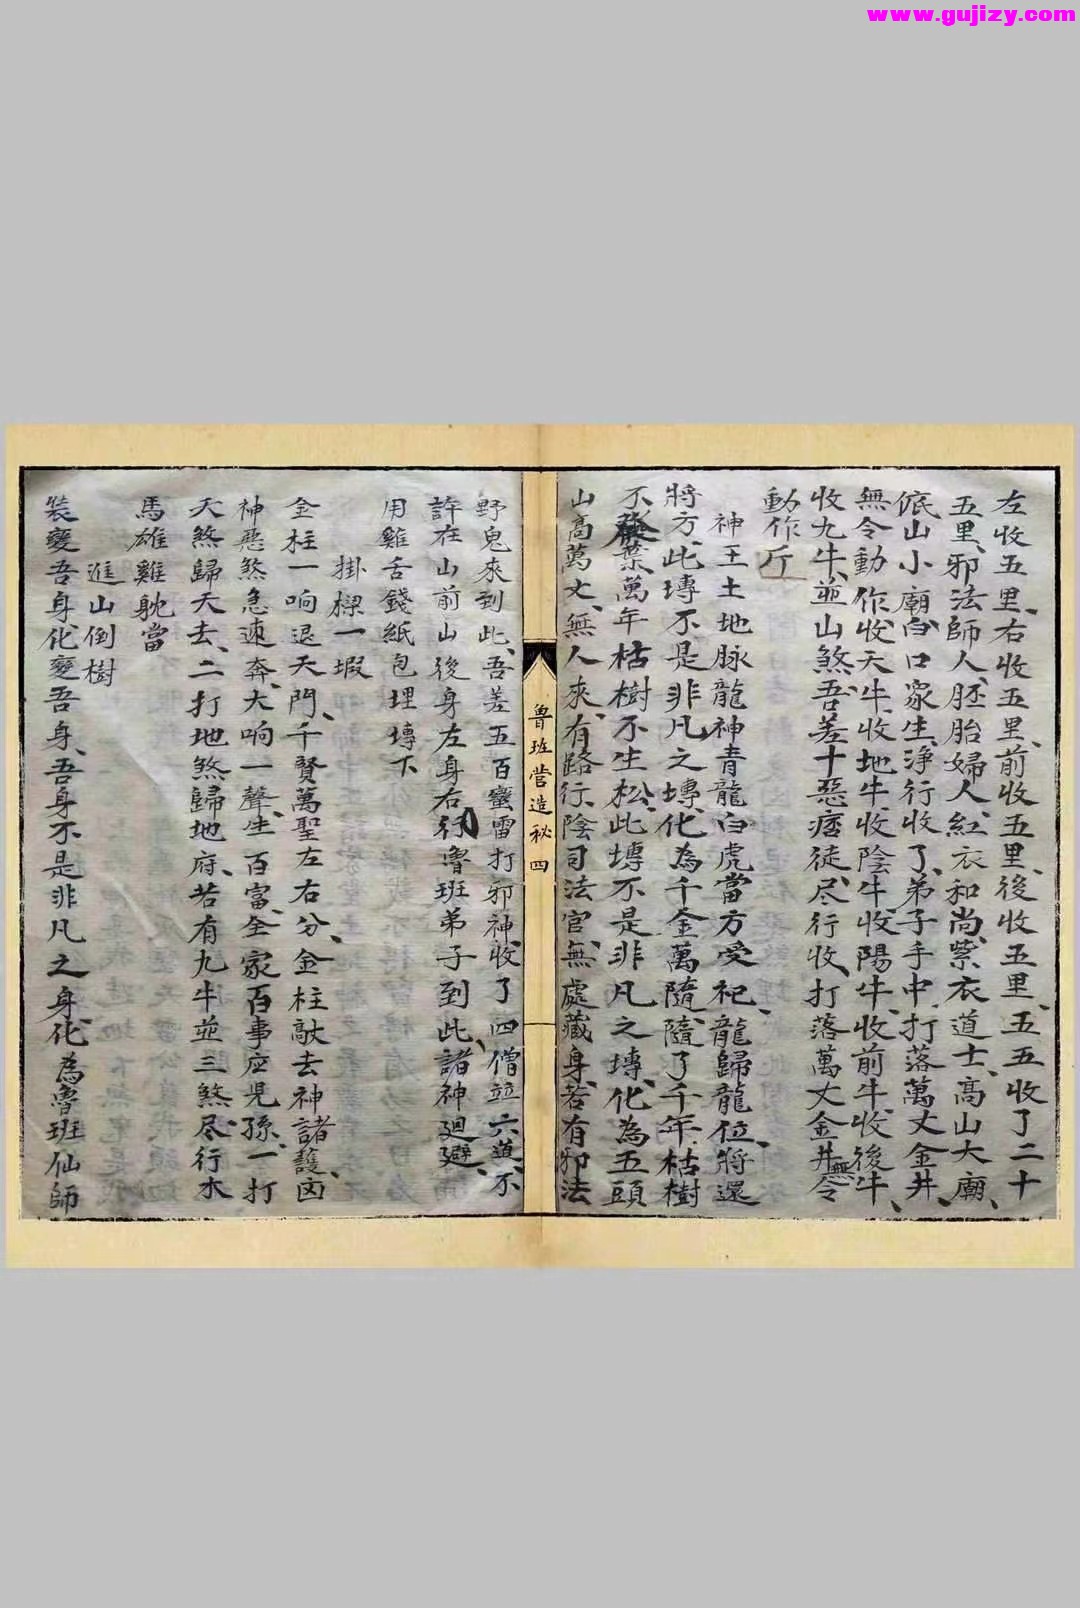 www.gujizy.com
左收五里、右收五里、前收五里、後收五里、五五收了二十
五里、邪法師人、胚胎婦人、紅衣和尚、紫衣道士、高山大廟、
底山小廟、白口家生、淨行收了、弟子手中、打落萬丈金井、
無令動作、收天牛、收地牛、收陰牛、收陽牛、收前牛、收後牛、
收九牛、並山煞、吾差十惡痞徒、尽行收、打落萬丈金井無令
動作斤
神王土地脉龍神青龍白虎當方受祀、龍歸龍位、將還
將方、此塼不是非凡之塼、化為千金萬隨、隨了千年、枯樹
不發葉、萬年枯樹不生松、此塼不是非凡之塼、化為五頭
山高萬丈、無人來、有路行、陰司法官、無處藏身、若有邪法
魯班營造秘 四
野鬼來到此、吾差五百蠻雷打邪神、收了四僧並六道、不
許在山前山後身左身右行、魯班弟子到此、諸神廻避、
用雞舌錢紙包埋塼下
掛樑一塅
金柱一响退天門、千賢萬聖左右分、金柱敲去神諸護、凶
神惡煞急速奔、大响一聲、生百富、全家百事庄児孫、一打
天煞歸天去、二打地煞歸地府、若有九牛並三煞、尽行水
馬雄雞躭當
進山倒樹
裝變吾身、化變吾身、吾身不是非凡之身、化為魯班仙師